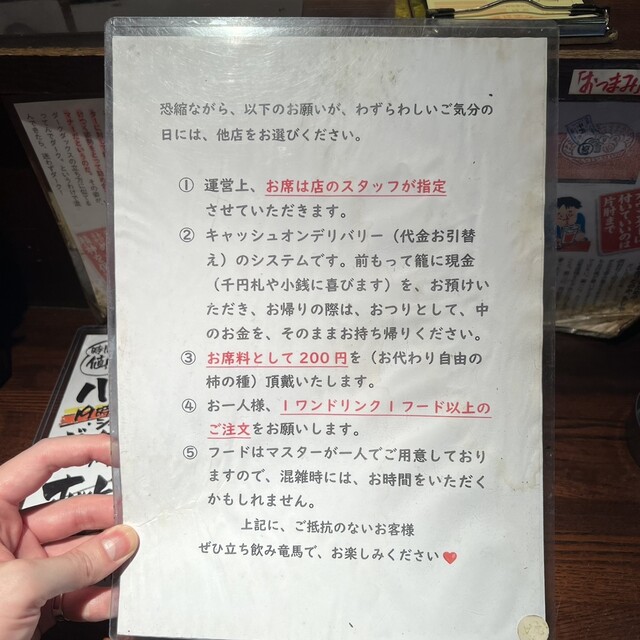 恐縮ながら、以下のお願いが、わずらわしいご気分の
日には、他店をお選びください。
① 運営上、お席は店のスタッフが指定
させていただきます。
② キャッシュオンデリバリー（代金お引替
え）のシステムです。前もって籠に現金
（千円札や小銭に喜びます）を、お預けい
ただき、お帰りの際は、おつりとして、中
のお金を、そのままお持ち帰りください。
③ お席料として200円を（お代わり自由の
柿の種）頂戴いたします。
④ お一人様、1ワンドリンク1フード以上の
ご注文をお願いします。
⑤ フードはマスターが一人でご用意しており
ますので、混雑時には、お時間をいただく
かもしれません。
上記に、ご抵抗のないお客様
ぜひ立ち飲み竜馬で、お楽しみください
「おつまみ